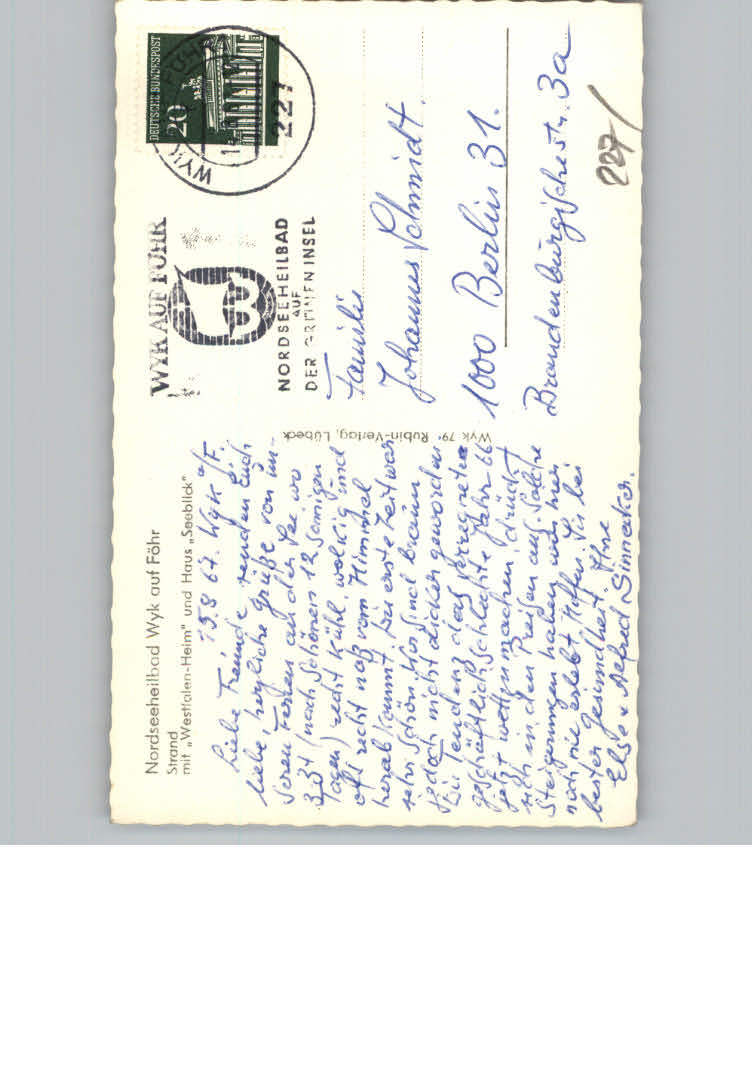 Nordseeheilbad Wyk auf Föhr
Strand
mit „Westfalen-Heim" und Haus „Seeblick"
15.8.67. Wyk a/F.
Liebe Freunde senden Euch
liebe, herzliche Grüße von un-
seren Ferien an der See, wo
es jetzt (nach schönen 12 sonnigen
Tagen) recht kühl, wolkig und
oft recht naß vom Himmel
herab kommt. Die erste Zeit war
sehr schön. Wir sind braun
jedoch nicht dicker geworden
Die Tendenz das
geschäftlich schlechte Jahr 66
jetzt wett zu machen, drückt
sich in den Preisen aus. Solche
Steigerungen haben wir hier
noch nie erlebt. Hoffen, Sie bei
bester Gesundheit. Ihre
Else + Alfred
Wyk 79 Rubin-Verlag, Lübeck
WYK AUF FÖHR
NORDSEEHEILBAD
AUF
DER GRÜNEN INSEL
DEUTSCHE BUNDESPOST
20
WYK FÖHR
227
Familie
Johannes Schmidt.
1000 Berlin 31.
Brandenburgischestr. 3a
227/